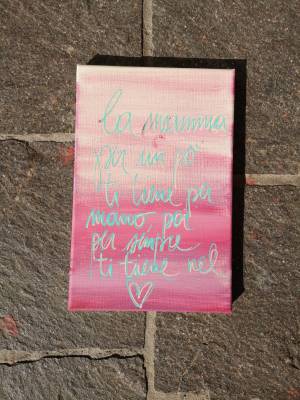 la mamma
per un po'
ti tiene per
mano, poi
per sempre
ti tiene nel